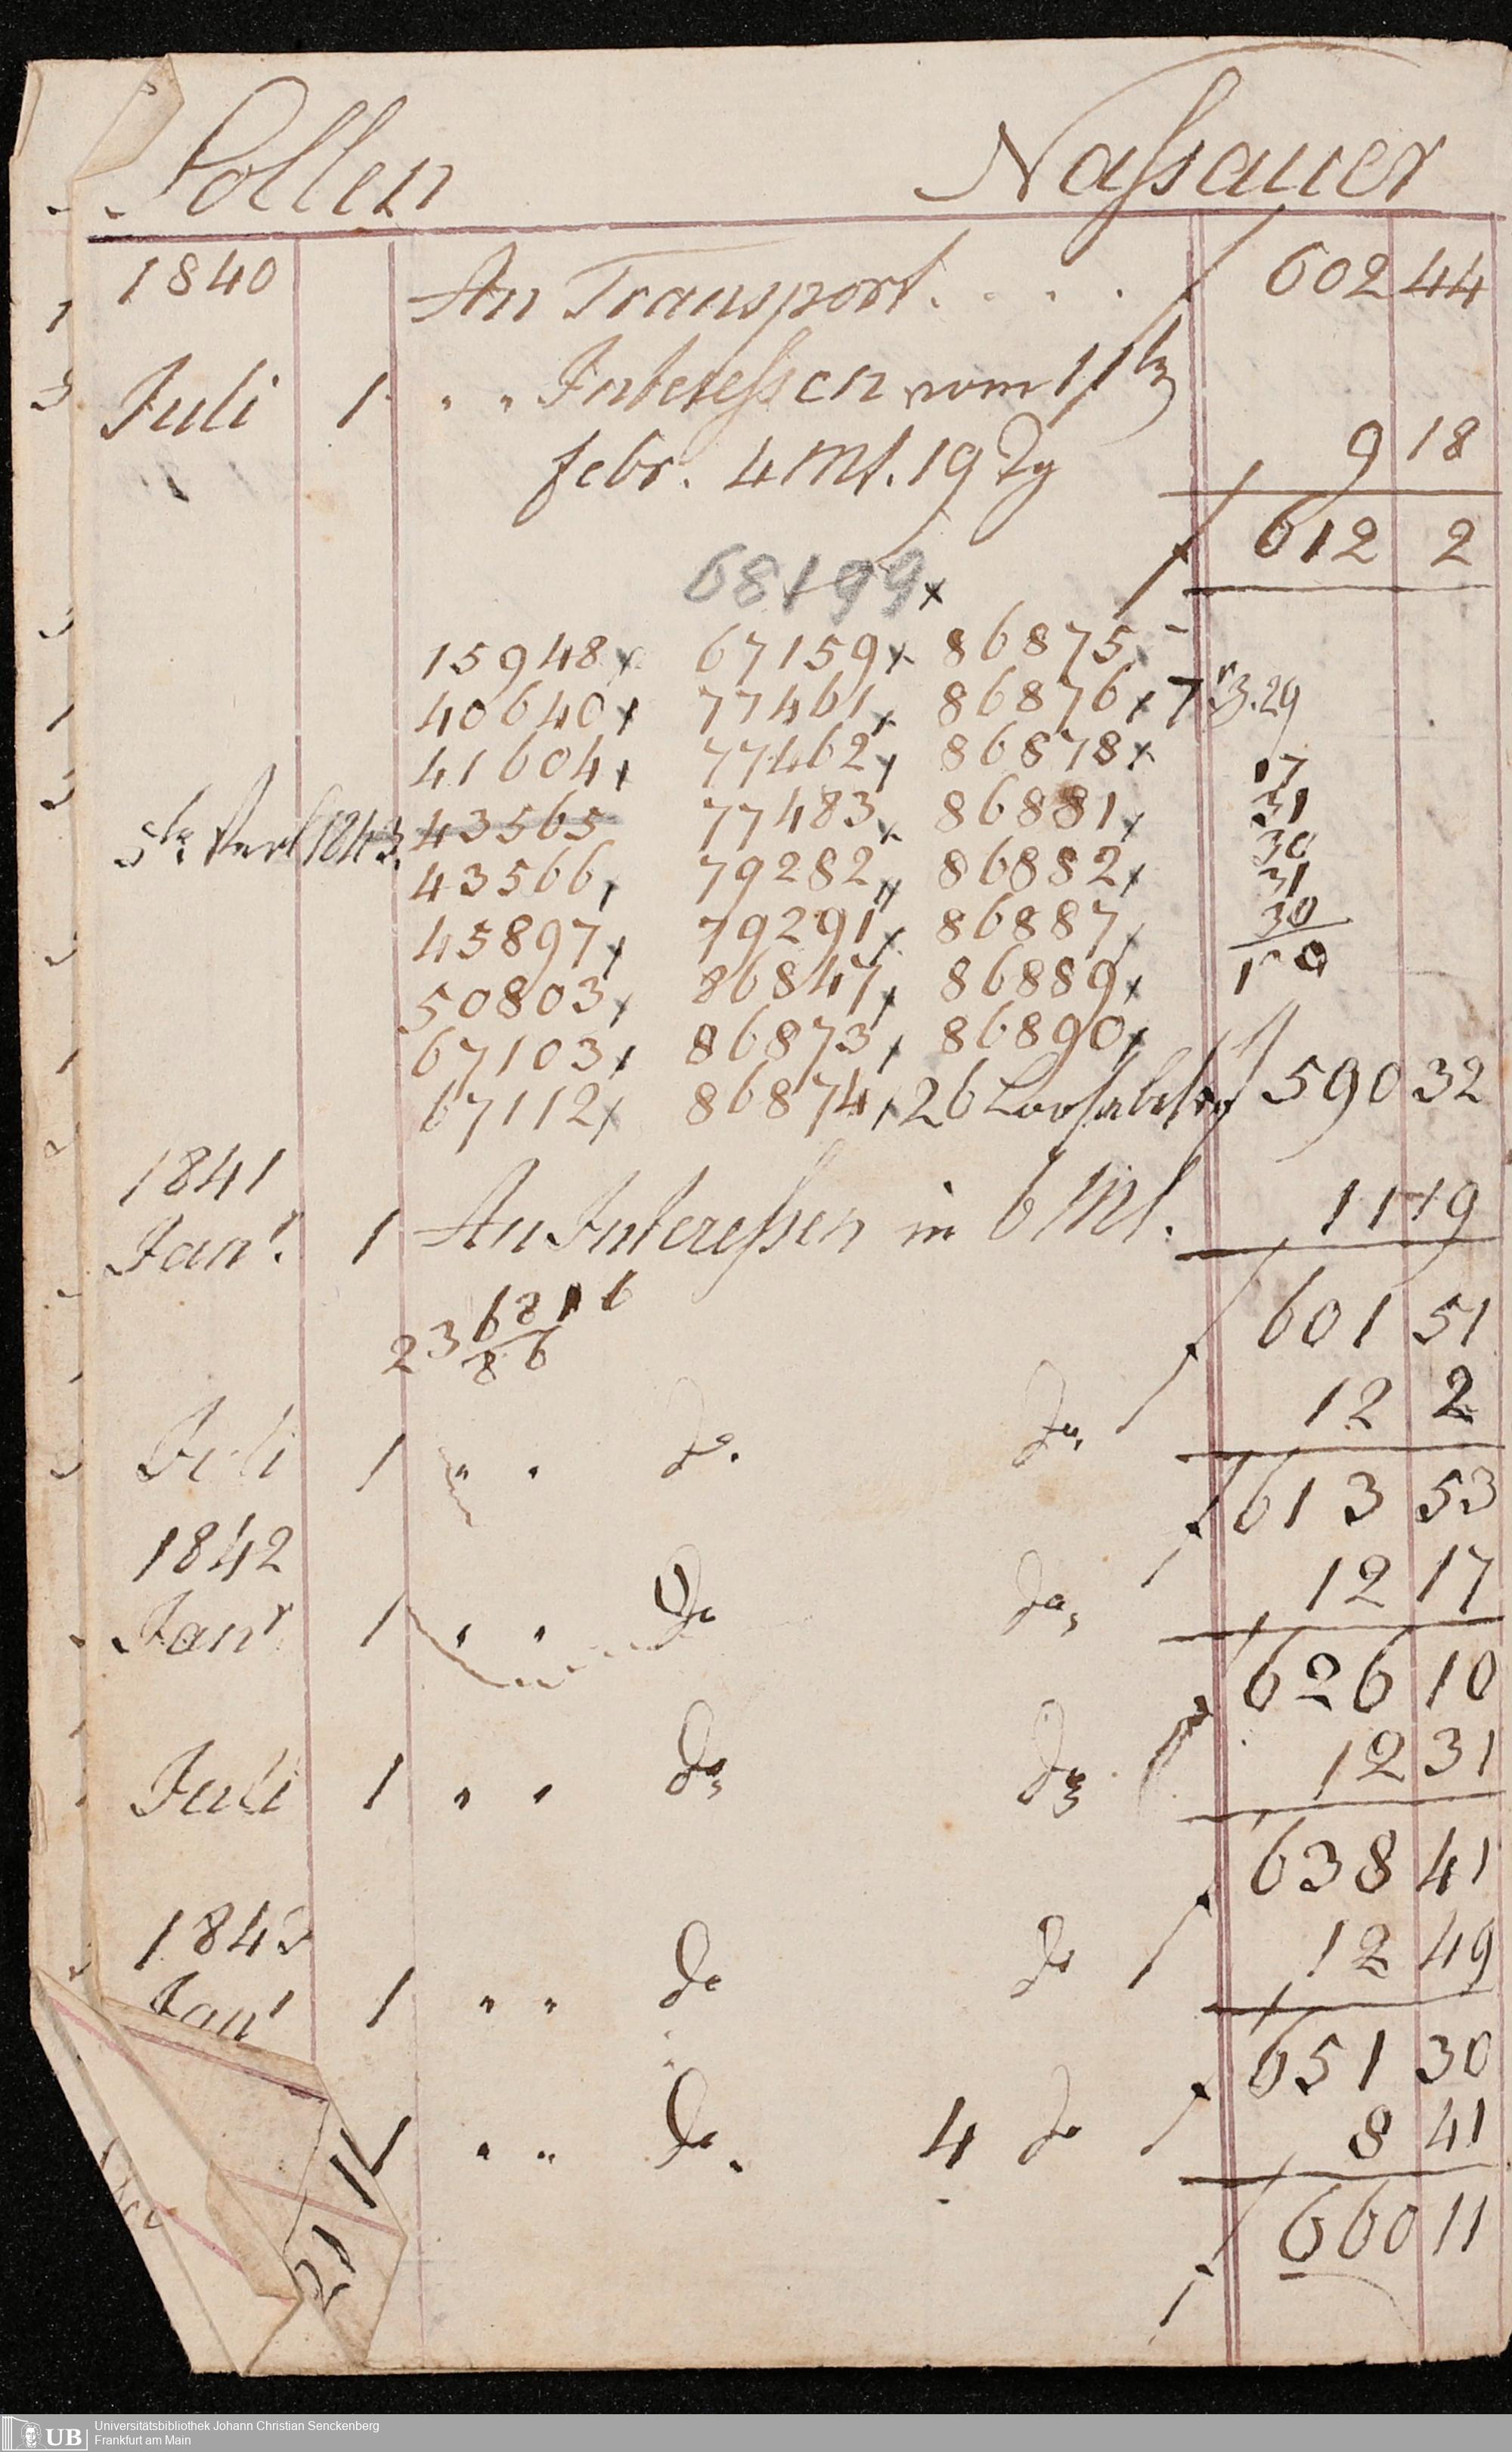 Sollen Nassauer
1840 An Transport . . . . f 602 44
Juli 1 " " Interessen vom 11
febr. 4 Mt. 19 Tg 9 18
f 612 2
68199 x
15948 x 67159 x 86875 -
40640 x 77461 x 86876 x 7 3.29
41604 x 77462 x 86878 x 17
43565 77483 x 86881 x 31
1843. 43566 x 79282 x 86882 x 30
45897 x 79291 x 86887 x 31
50803 x 86847 x 86889 x 30
67103 x 86873 x 86890 x
67112 x 86874 x 26 f 590 32
1841
Janr. 1 An Interessen in 6 Mt. 11 19
23 6816
86
f 601 51
12 2
Juli 1 " " do. do.
f 613 53
1842 12 17
Janr 1 " " do do
f 626 10
12 31
Juli 1 " " do do
f 638 41
1843 12 49
Janr 1 " " do do
f 651 30
1 " " do. 4 do 8 41
21
f 660 11
UB Universitätsbibliothek Johann Christian Senckenberg
Frankfurt am Main